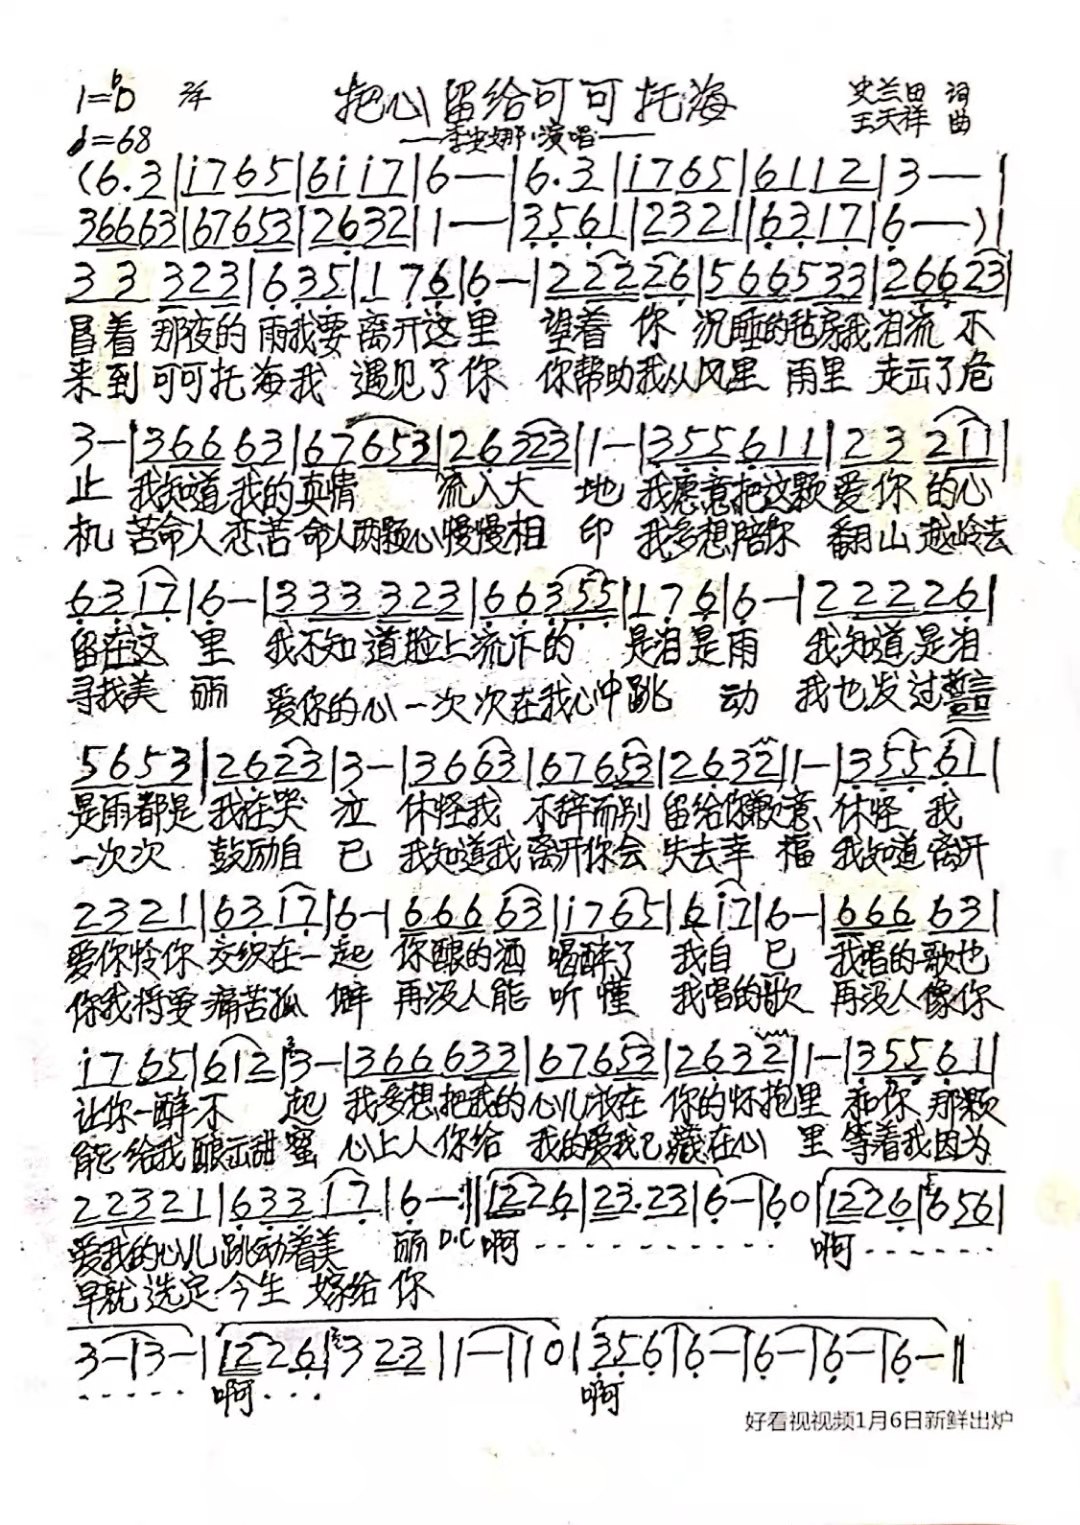 1=ᵇD 2/4 把心留给可可托海 史兰田 词
♩=68 ——李安娜·演唱—— 王天祥 曲
(6.3|i765|6ii7|6——|6.3|i765|6112|3——|
36663|67653|2632|1——|3561|2321|6317|6——)|
33 323|635|176|6—|222 26|566533|26623|
冒着 那夜的 雨我要 离开这里 望着 你 沉睡的毡房我泪流 不
来到可可托海我 遇见了你 你帮助我从风里 雨里 走云了危
3—|36663|67653|26323|1—|355611|23 211|
止 我知道我的真情 流入大 地 我愿意把这颗爱你的心
机 苦命人恋苦命人两颗心慢慢相 印 我多想陪你 翻山越岭去
6317|6—|333323|66355|176|6—|222226|
留在这 里 我不知道脸上流下的 是泪是雨 我知道是泪
寻找美 丽 爱你的心一次次在我心中跳 动 我也发过誓言
5653|2623|3—|3663|67653|2632|1—|35561|
是雨都是 我在哭 泣 休怪我 不辞而别 留给你歉意 休怪 我
一次次 鼓励自 己 我知道我离开你会 失去幸 福 我知道 离开
2321|6317|6—|66663|i765|6i7|6—|66663|
爱你怜你 交织在一 起 你酿的酒 喝醉了 我自 己 我唱的歌也
你我将要 痛苦孤 僻 再没人能 听 懂 我唱的歌 再没人像你
i765|612|3—|366633|67653|2632|1—|35561|
让你一醉不 起 我多想把我的心儿放在 你的怀抱里 和你 那颗
能给我酿云甜蜜 心上人你给 我的爱我已藏在心 里 等着我因为
222321|63317|6—:‖1226|23·23|6—|60|1226|6561|
爱我的心儿跳动着美 丽 D.C 啊 - - - - - - - - - 啊 - - - - - -
早就选定今生 嫁给 你
3—|3—|1226|32·3|1—|10|356|6—|6—|6—|6—‖
- - - - - - 啊 · · · 啊
好看视视频1月6日新鲜出炉